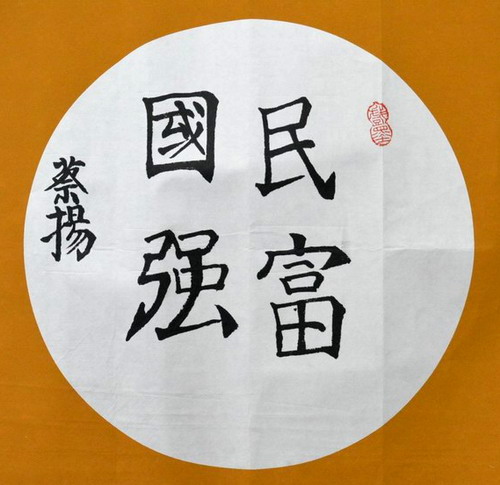 民富
國强
蔡揚